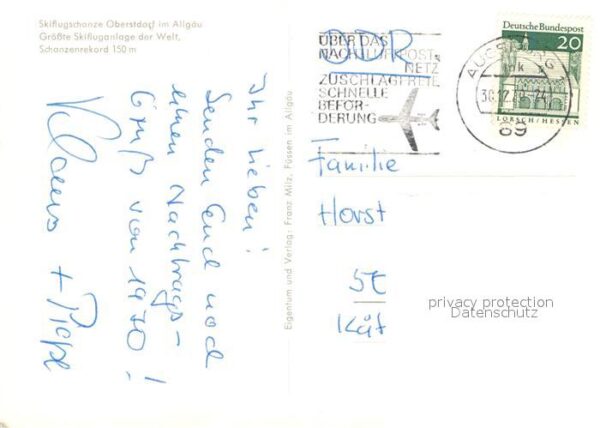 Skiflugschanze Oberstdorf im Allgäu
Größte Skifluganlage der Welt,
Schanzenrekord 150 m
Ihr Lieben!
Senden Euch noch
einen Nachtrags-
Gruß von 1970!
Klaus +
Eigentum und Verlag: Franz Milz, Füssen im Allgäu
DDR
ÜBER DAS
NACHTLUFTPOST
NETZ
ZUSCHLAGFREIE
SCHNELLE
BEFÖR-
DERUNG
AUGSBURG
30.12.69-24
89
Deutsche Bundespost
20
LORSCH/HESSEN
Familie
Horst
privacy protection
Datenschutz